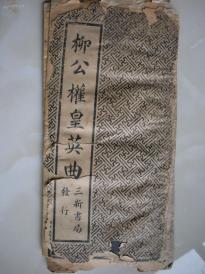 柳公權皇英曲
三新書局
發行